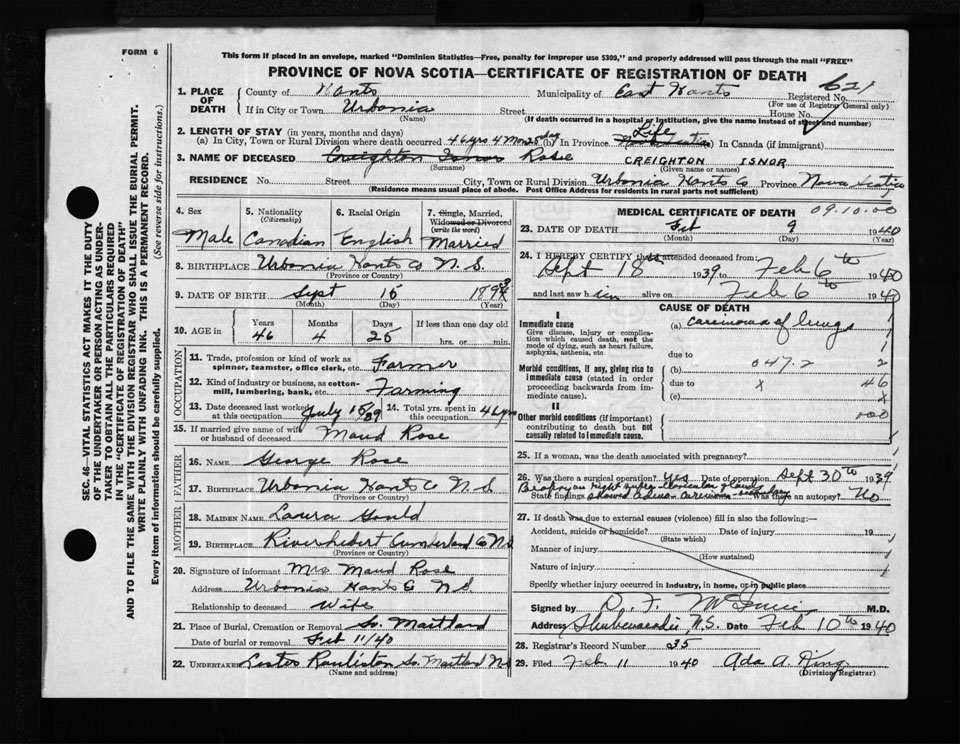 FORM 6
This form if placed in an envelope, marked "Dominion Statistics—Free, penalty for improper use $300," and properly addressed will pass through the mail "FREE"
PROVINCE OF NOVA SCOTIA—CERTIFICATE OF REGISTRATION OF DEATH
621
1. PLACE OF DEATH County of Hants Municipality of East Hants Registered No.
(For use of Registrar General only)
If in City or Town Urbania Street House No.
(Name) (If death occurred in a hospital or institution, give the name instead of street and number)
2. LENGTH OF STAY (in years, months and days)
(a) In City, Town or Rural Division where death occurred 46 yrs 4 Mon 25 day (b) In Province Life In Canada (if immigrant)
3. NAME OF DECEASED Creighton Isnor Rose CREIGHTON ISNOR
(Surname) (Given name or names)
RESIDENCE No. Street City, Town or Rural Division Urbania Hants Co Province Nova Scotia
(Residence means usual place of abode. Post Office Address for residents in rural parts not sufficient)
4. Sex Male
5. Nationality (Citizenship) Canadian
6. Racial Origin English
7. Single, Married, Widowed or Divorced (write the word) Married
8. BIRTHPLACE Urbania Hants Co N.S.
(Province or Country)
9. DATE OF BIRTH Sept 15 1893
(Month) (Day) (Year)
10. AGE in Years 46 Months 4 Days 25 If less than one day hrs. or min.
OCCUPATION
11. Trade, profession or kind of work as spinner, teamster, office clerk, etc. Farmer
12. Kind of industry or business, as cotton-mill, lumbering, bank, etc. Farming
13. Date deceased last worked at this occupation July 15/39 14. Total yrs. spent in this occupation 46 yrs
15. If married give name of wife or husband of deceased Maud Rose
FATHER
16. Name George Rose
17. Birthplace Urbania Hants Co N.S
(Province or Country)
MOTHER
18. Maiden Name Laura Gould
19. Birthplace Riverhebert Cumberland Co N.S.
(Province or Country)
20. Signature of informant Mrs Maud Rose
Address Urbania Hants Co N.S.
Relationship to deceased Wife
21. Place of Burial, Cremation or Removal So. Maitland
Date of burial or removal Feb 11/40
22. UNDERTAKER So. Maitland NS
(Name and address)
MEDICAL CERTIFICATE OF DEATH 09.10.00
23. DATE OF DEATH Feb 9 1940
(Month) (Day) (Year)
24. I HEREBY CERTIFY that I attended deceased from:
Sept 18th 1939 to Feb 6th 1940
and last saw him alive on Feb 6th 1940
CAUSE OF DEATH
I
Immediate cause (a) carcinoma of lungs
Give disease, injury or complication which caused death, not the mode of dying, such as heart failure, asphyxia, asthenia, etc
due to
Morbid conditions, if any, giving rise to immediate cause (stated in order proceeding backwards from immediate cause).
(b) 047.2 2
due to X 46
(c) X
II
100
Other morbid conditions (if important) contributing to death but not causally related to immediate cause.
25. If a woman, was the death associated with pregnancy?
26. Was there a surgical operation? Yes Date of operation Sept 30th 1939
Biopsy on right supra-clavicular glands
State findings showed adeno-carcinoma - secondary Was there an autopsy? No
27. If death was due to external causes (violence) fill in also the following:—
Accident, suicide or homicide? Date of injury 19
(State which)
Manner of injury
(How sustained)
Nature of injury
Specify whether injury occurred in industry, in home, or in public place
Signed by D. F. M.D.
Address Shubenacadie, N.S. Date Feb 10th 1940
28. Registrar's Record Number 35
29. Filed Feb 11 1940 Ada A. King
(Division Registrar)
SEC. 46—VITAL STATISTICS ACT MAKES IT THE DUTY
OF THE UNDERTAKER OR PERSON ACTING AS UNDER-
TAKER TO OBTAIN ALL THE PARTICULARS REQUIRED
IN THE "CERTIFICATE OF REGISTRATION OF DEATH"
AND TO FILE THE SAME WITH THE DIVISION REGISTRAR WHO SHALL ISSUE THE BURIAL PERMIT.
WRITE PLAINLY WITH UNFADING INK. THIS IS A PERMANENT RECORD.
Every item of information should be carefully supplied. (See reverse side for instructions.)